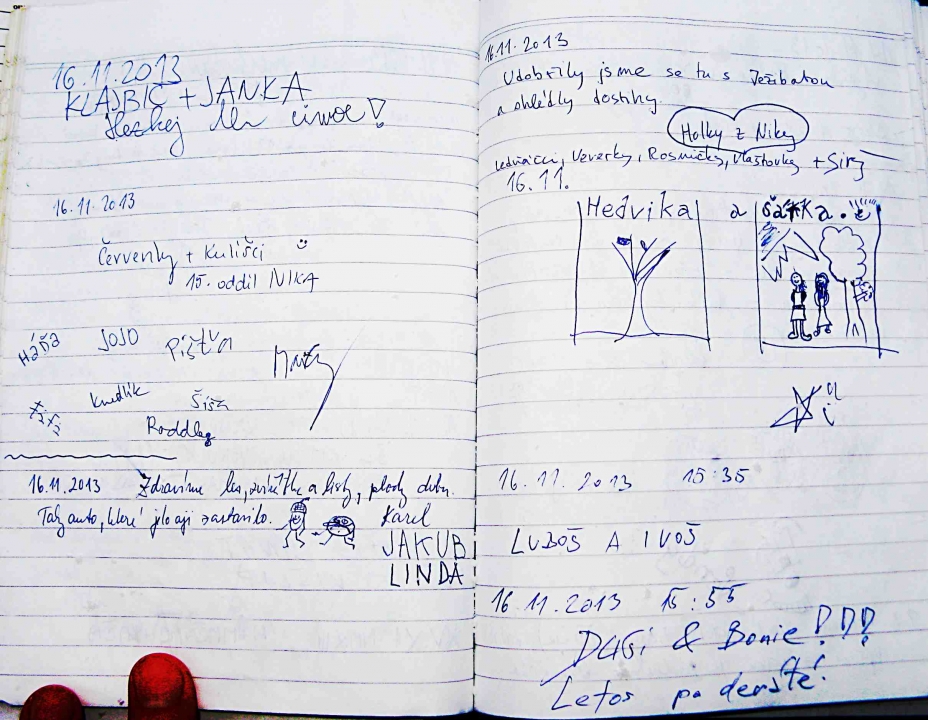 16.11.2013
KLAJBIC + JANKA
Hezkej den
16.11.2013
Červenky + Kulíšci
15. oddíl NIKA
HÁĎA JOJO Pišťva
Knedlík Šiša
Matěj
16.11.2013 Zdravíme les, zvířátka a listy, plody dubu.
Taky auto, které jelo a zastavilo.
Karel
JAKUB
LINDA
16.11.2013
Udobřily jsme se tu s Ježibabou
a ohlédly dostihy.
Holky z Niky
Ledňáčci, Veverky, Rosničky, Vlaštovky
16.11.
Hedvika a Šárka.
16.11.2013 15:35
LUBOŠ A IVOŠ
16.11.2013 15:55
DAGI & Bonie!!!!
Letos po deváté!